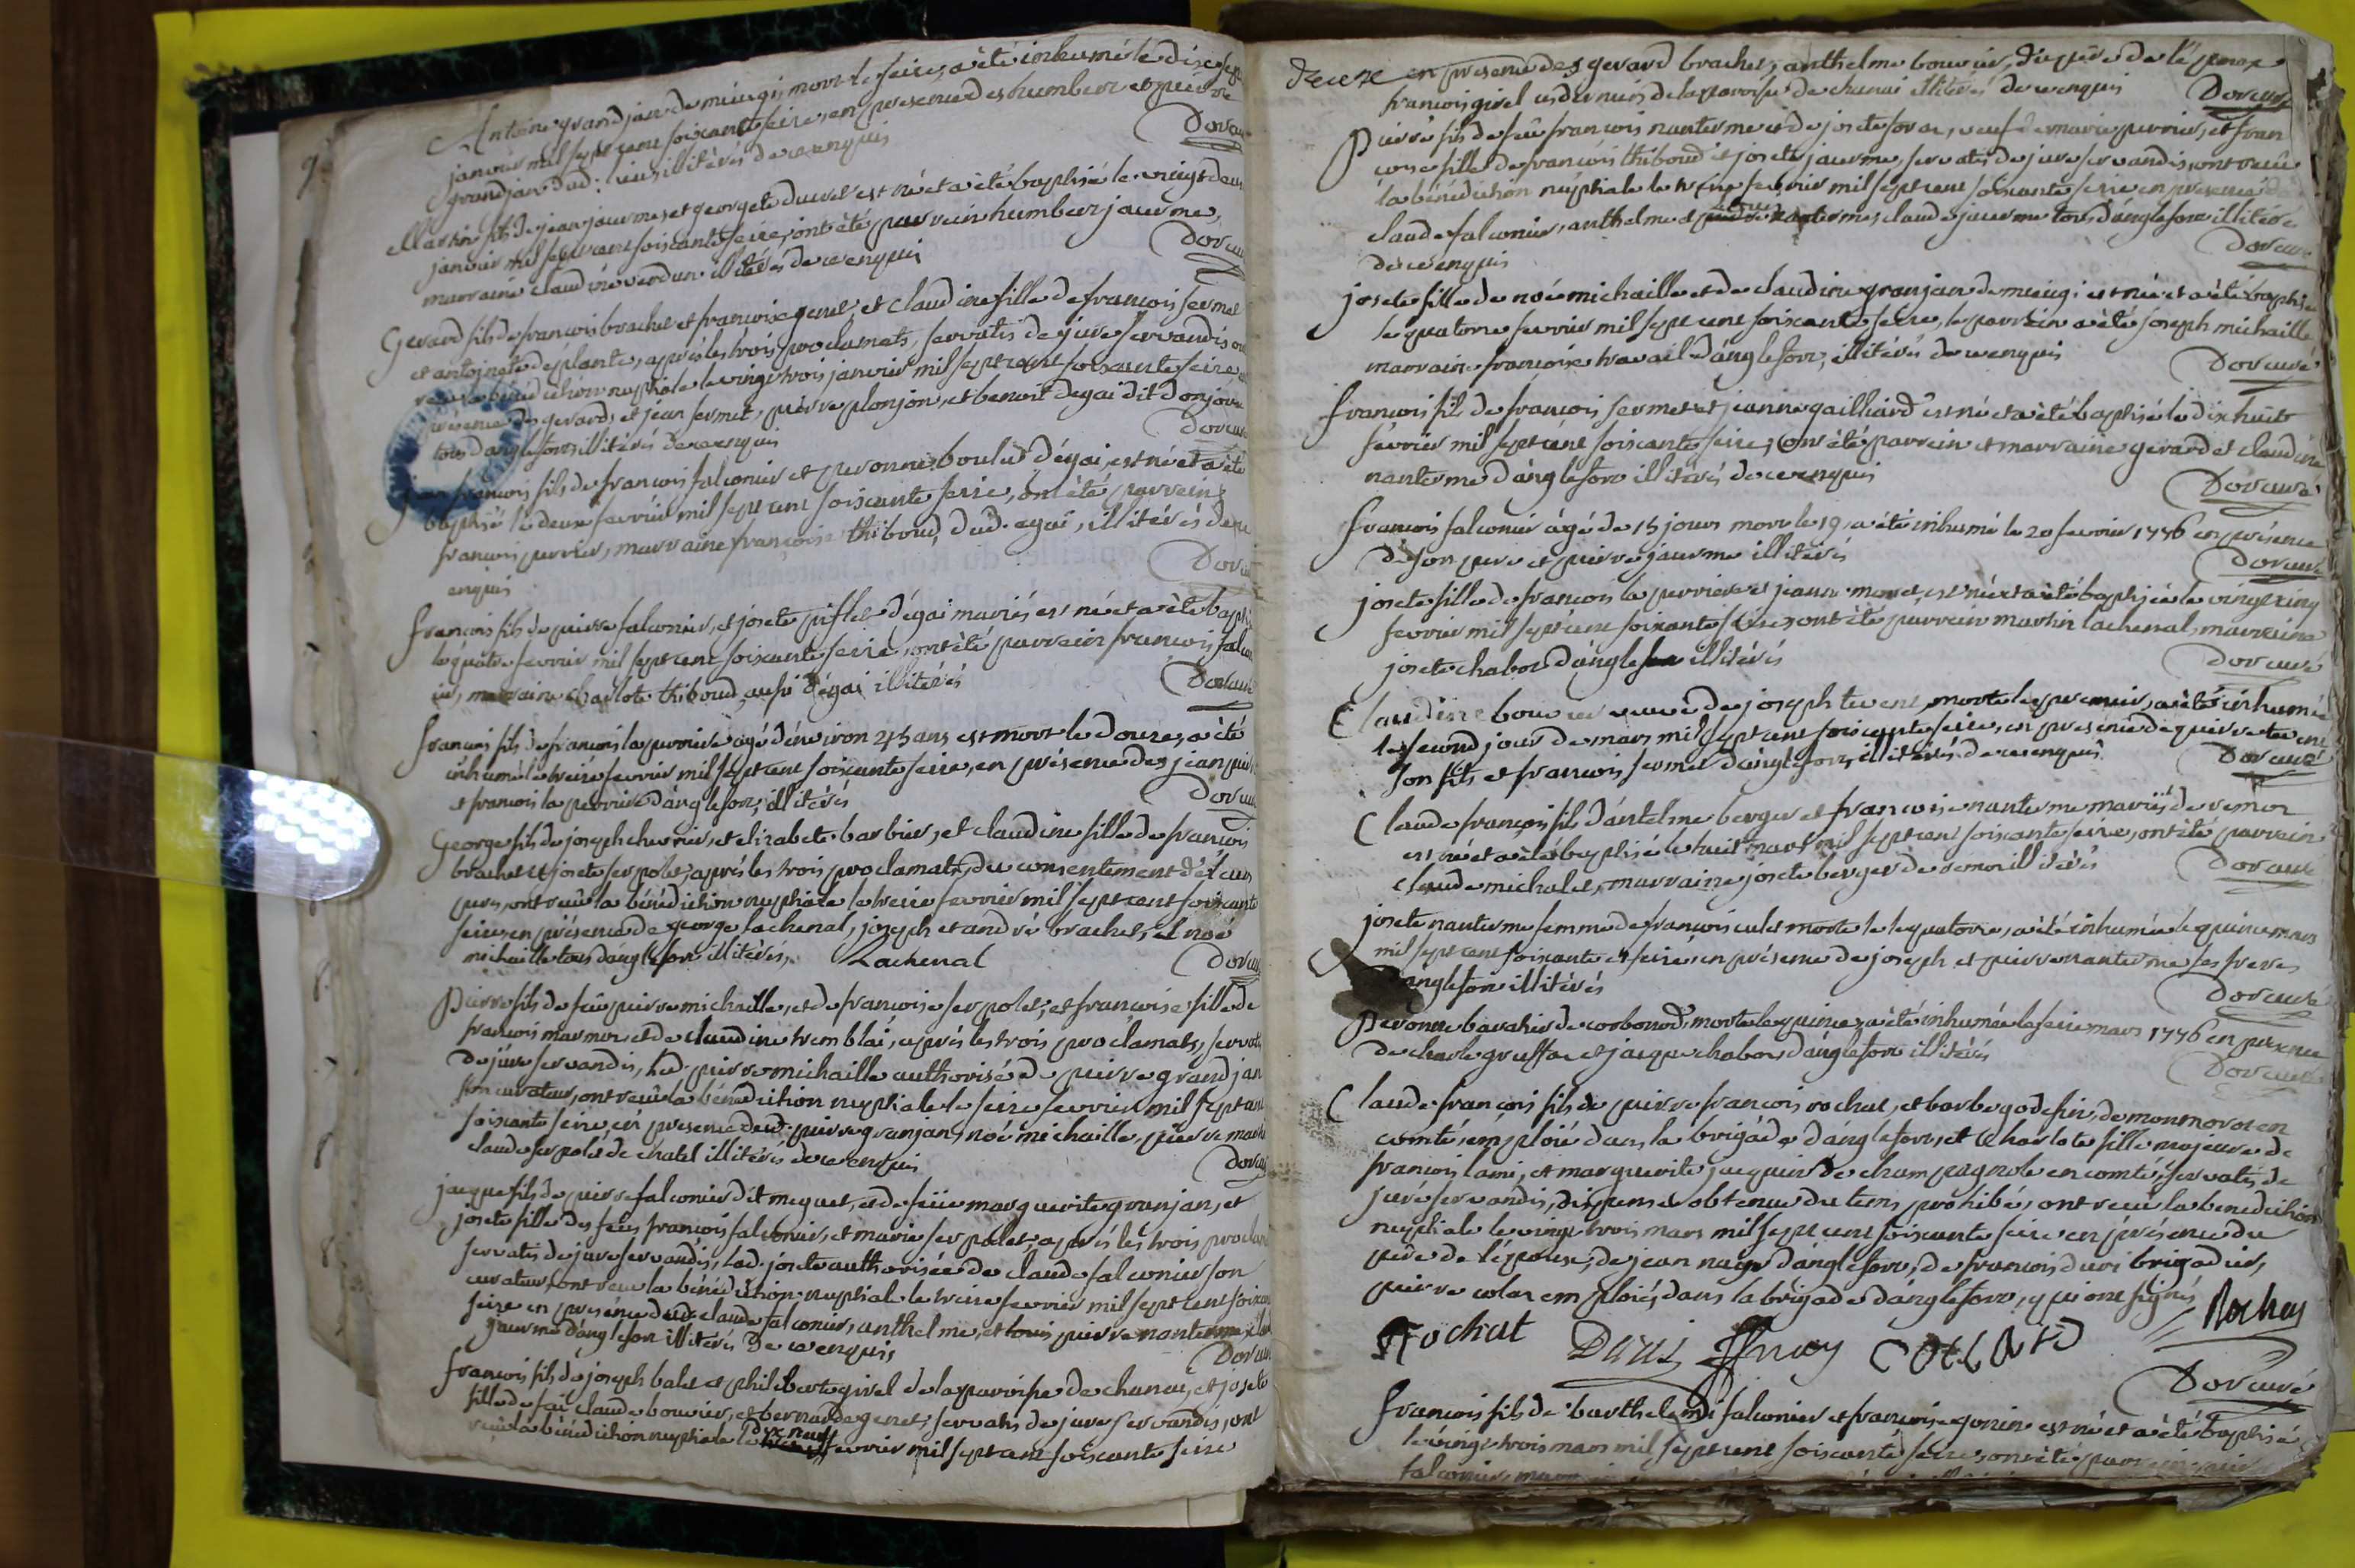 Antoine grandjan de mieugi, mort le seize, a été inhumé le dixsept
janvier mil sept cent soixante seize, en presence des humbert et pierre
grandjan dud. lieu illitérés de ce enquis
Dorcuré
Martin fils de jean jaurme et georgete ducret est né et a été baptisé le vingt deux
janvier mil sept cent soixante seize, ont été parrein humbert jaurme,
marraine claudine verdun illitérés de ce enquis
Dorcuré
Gerard fils de francois brachet et francoise genet, et claudine fille de francois sermet
et antoinete desplante, après les trois proclamats, servatis de jure servandis ont
receu la bénédiction nuptiale le vingt trois janvier mil sept cent soixante seize en
présence des gerard, et jean sermet, pierre plonjon, et benoit dégai dit donjon
tous d'anglefort illitérés de ce enquis
Dorcuré
jean francois fils de francois falconier et peronne boulud d'égai, est né et a été
baptisé le deux fevrier mil sept cent soixante seize, ont été parrein
francois perrier, marraine francoise thiboud, dud. egai, illitérés de ce
enquis
Dorcuré
francois fils de pierre falconier, et josete piflet d'égai mariés est né et a été bapti
le quatre fevrier mil sept cent soixante seize, ont été parrein francois falcon
ier, marraine charlote thiboud, aussi d'égai illitérés
Dorcuré
francois fils de francois la perrière agé d'environ 25 ans est mort le douze, a été
inhumé le treize fevrier mil sept cent soixante seize, en présence des jean pier
et francois la perrière d'anglefort, illitérés
Dorcuré
George fils de joseph chevrier, et elizabete barbier, et claudine fille de francois
brachet et josete serpolet, après les trois proclamats, du consentement de leurs
peres, ont receu la bénédiction nuptiale le treize fevrier mil sept cent soixante
seize, en présence de george lachenal, joseph et andré brachet, et noé
michaille tous d'anglefort illitérés,
Lachenal
Dorcuré
Pierre fils de feu pierre michaille, et de francoise serpolet, et francoise fille de
francois marmor, et de claudine tremblai, après les trois proclamats, servatis
de jure servandis, led. pierre michaille authorisé de pierre grandjan
son curateur, ont receu la bénédiction nuptiale le seize fevrier mil sept cent
soixante seize, en presence dud. pierre granjan, noé michaille, pierre
claude serpolet de chatel illitérés de ce enquis
Dorcuré
jacque fils de pierre falconier dit mequet, et de feüe marguerite granjan, et
josete fille des feus francois falconier, et marie serpolet, après les trois proclam
servatis de jure servandis, lad. josete authorisée de claude falconier son
curateur, ont receu la bénédiction nuptiale le treize fevrier mil sept cent soixante
seize en presence dud. claude falconier, anthelme, et louis pierre nanterme,
jaurme d'anglefort illitérés de ce enquis
Dorcuré
francois fils de joseph balet et philiberte girel de la parroisse de chanai, et josete
fille de feu claude bouvier, et bernarde genet, servatis de jure servandis, ont
receu la bénédiction nuptiale le dix neuf fevrier mil sept cent soixante seize
seize en presence des gerard brachet, anthelme bouvier, du père de l'époux
francois girel ces derniers de la parroisse de chanai illitérés de ce enquis
Dorcuré
Pierre fils de feu francois nanterme et de josete forat, veuf de marie perrier, et fran
coise fille de francois thiboud et josete jaurme, servatis de jure servandis, ont receu
la bénédiction nuptiale le fevrier mil sept cent soixante seize en presence de
claude falconier, anthelme et nanterme, claude jaurme tous d'anglefort illitérés
de ce enquis
Dorcuré
josete fille de noé michaille et de claudine granjan de mieugi est née et a été baptisée
le quatorze fevrier mil sept cent soixante seize, le parrein a été joseph michaille
marraine francoise travail d'anglefort, illitérés de ce enquis
Dorcuré
francois fils de francois sermet et jeanne gailliard est né et a été baptisé le dix huit
fevrier mil sept cent soixante seize, ont été parrein et marraine gerard et claudine
nanterme d'anglefort illitérés de ce enquis
Dorcuré
francois falconier agé de 15 jours mort le 19, a été inhumé le 20 fevrier 1776 en présence
de son pere et pierre jaurme illitérés
Dorcuré
josete fille de francois la perrière et jeanne moret, est née et a été baptisée le vingt cinq
fevrier mil sept cent soixante seize, ont été parrein martin lachenal, marraine
josete chabod d'anglefort illitérés
Dorcuré
Claudine bouvier veuve de joseph tevent, morte le premier, a été inhumée
le second jour de mars mil sept cent soixante seize, en presence de pierre tevent
son fils et francois sermet d'anglefort, illitérés de ce enquis
Dorcuré
Claude francois fils d'antelme berger et francoise nanterme mariés de remor
est né et a été baptisé le huit mars mil sept cent soixante seize, ont été parrein
claude michalet, marraine josete berger de remor illitérés
Dorcuré
josete nanterme femme de francois culet morte le quatorze, a été inhumée le quinze mars
mil sept cent soixante et seize, en présence de joseph et pierre nanterme ses freres
d'anglefort illitérés
Dorcuré
Peronne bavahis de corbonod, morte le quinze, a été inhumée le seize mars 1776 en presence
de charle gruffat et jacque chabod d'anglefort illitérés
Dorcuré
Claude francois fils de pierre francois rochat, et barbe godefin, de monmorot en
comté, emploié dans la brigade d'anglefort, et charlote fille majeure de
francois lami, et marguerite jacquin de champagnole en comté, servatis de
jure servandis, dispense obtenue du tems prohibé, ont receu la benediction
nuptiale le vingt trois mars mil sept cent soixante seize en présence du
père de l'épouse, de jean nagr d'anglefort, de francois duri brigadier,
pierre colar emploiés dans la brigade d'anglefort, qui ont signés
Rochat
Rochat
COLLARD
Dorcuré
francois fils de barthelemi falconier et francoise gonin est né et a été baptisé
le vingt trois mars mil sept cent soixante seize, ont été parrein
falconier,